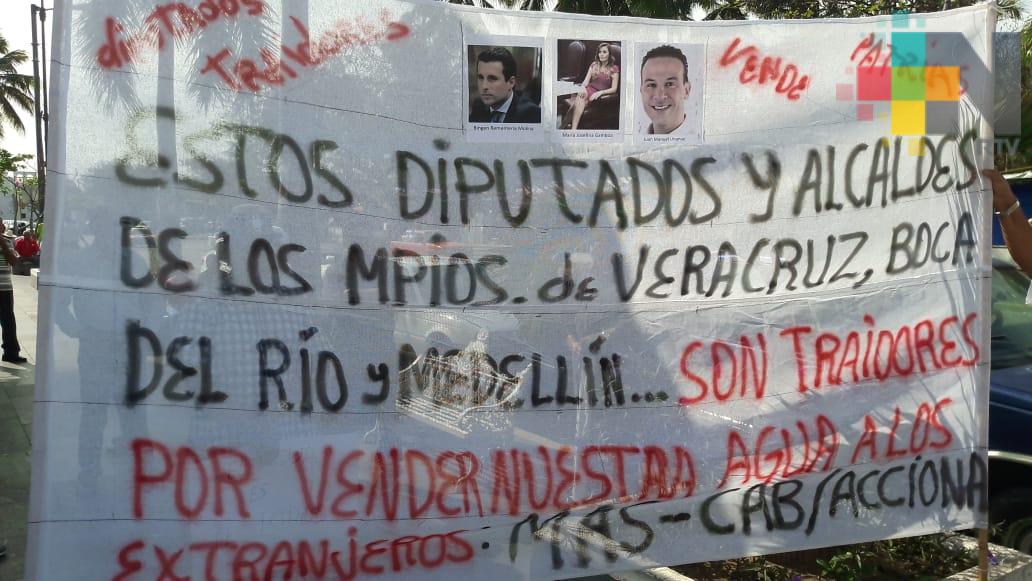 DIPUTADOS
TRAIDORES
VENDE
PATRIAS
Bingen Rementería Molina
María Josefina Gamboa
Juan Manuel Unánue
ESTOS DIPUTADOS Y ALCALDES
DE LOS MPÍOS. de VERACRUZ, BOCA
DEL RÍO y MEDELLÍN... SON TRAIDORES
POR VENDER NUESTRA AGUA A LOS
EXTRANJEROS: MAS-CAB/ACCIONA
RTV